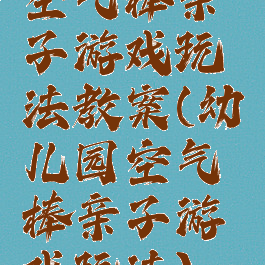 空气棒亲
子游戏玩
法教案(幼
儿园空气
棒亲子游
戏玩法)